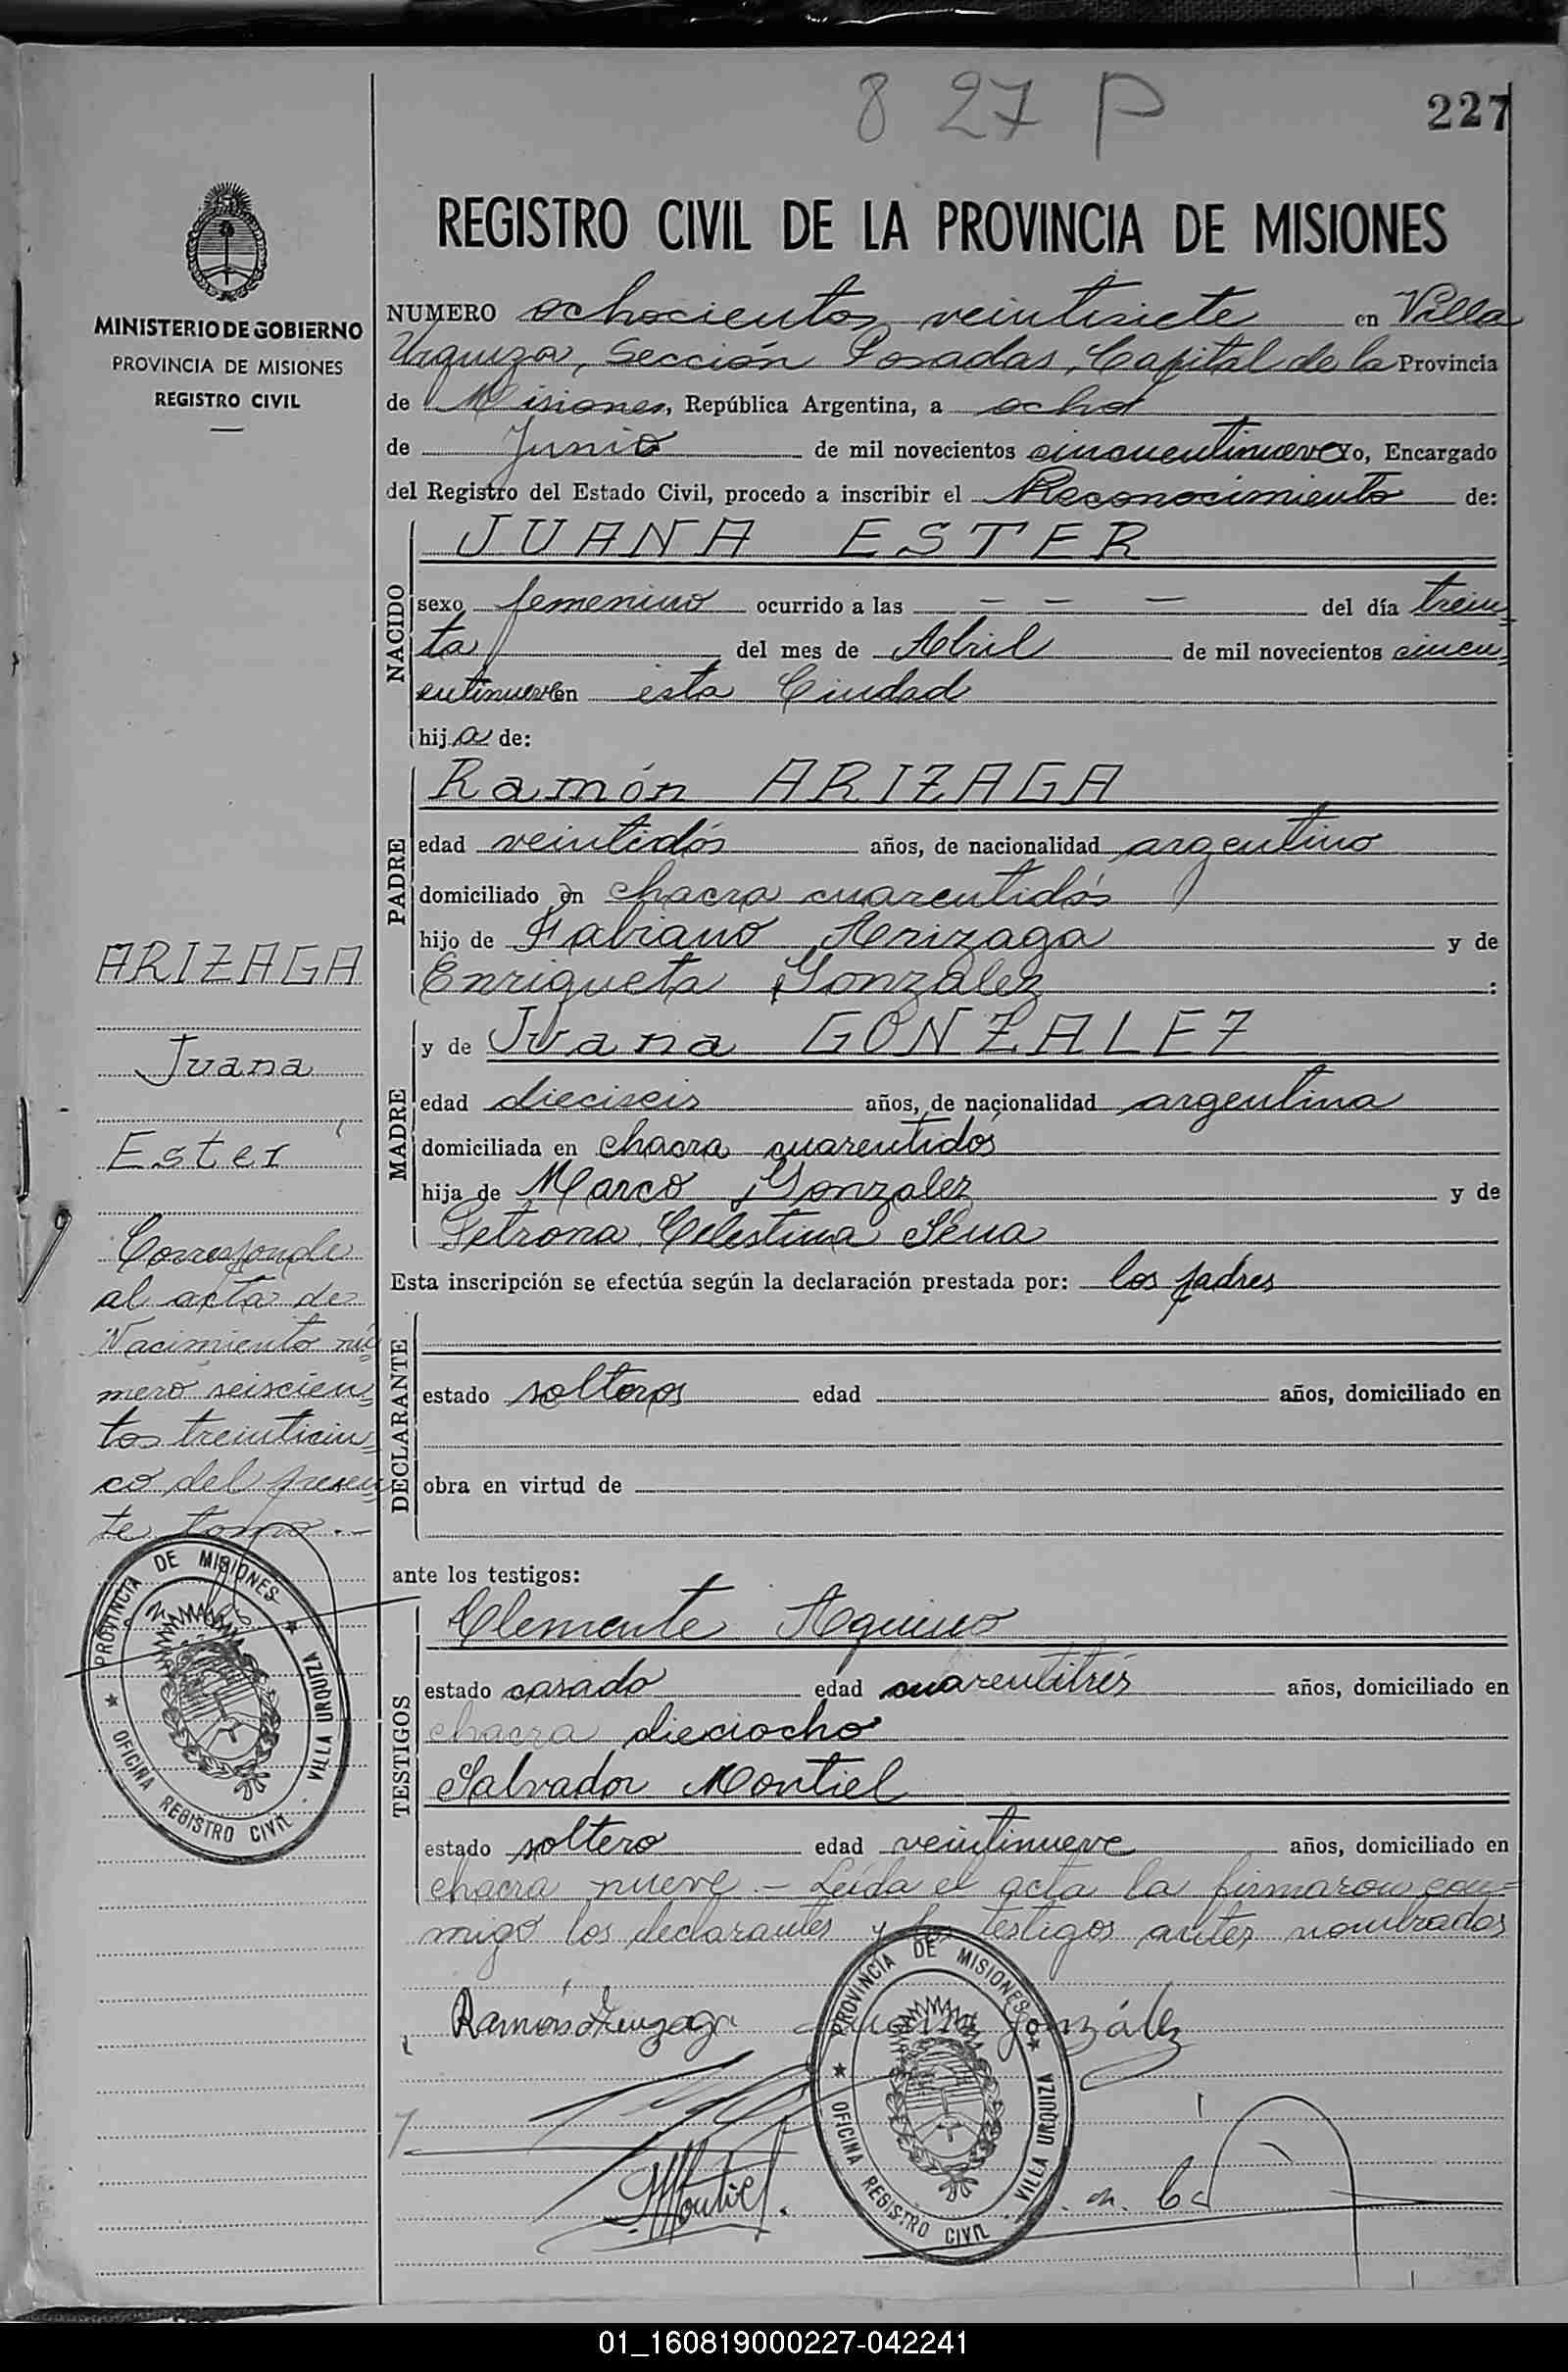 8 27 P
227
MINISTERIO DE GOBIERNO
PROVINCIA DE MISIONES
REGISTRO CIVIL
REGISTRO CIVIL DE LA PROVINCIA DE MISIONES
NUMERO ochocientos veintisiete en Villa
Urquiza, Sección Posadas, Capital de la Provincia
de Misiones, República Argentina, a ocho
de Junio de mil novecientos cincuentinueve yo, Encargado
del Registro del Estado Civil, procedo a inscribir el Reconocimiento de:
NACIDO
JUANA ESTER
sexo femenino ocurrido a las — — — del día trein
ta del mes de Abril de mil novecientos cincu
entinueve en esta Ciudad
hija de:
PADRE
Ramón ARIZAGA
edad veintidós años, de nacionalidad argentino
domiciliado en chacra cuarentidós
hijo de Fabiano Arizaga y de
Enriqueta Gonzalez :
MADRE
y de Juana GONZALEZ
edad dieciseis años, de nacionalidad argentina
domiciliada en chacra cuarentidos
hija de Marco Gonzalez y de
Petrona Celestina Sena
Esta inscripción se efectúa según la declaración prestada por: los padres
DECLARANTE
estado solteros edad años, domiciliado en
obra en virtud de
ante los testigos:
TESTIGOS
Clemente Aquino
estado casado edad cuarentitrés años, domiciliado en
chacra dieciocho
Salvador Montiel
estado soltero edad veintinueve años, domiciliado en
chacra nueve.— Leída el acta la firmaron con=
migo los declarantes y los testigos antes nombrados
Ramón Arizaga Juana González
Montiel
PROVINCIA DE MISIONES
OFICINA REGISTRO CIVIL · VILLA URQUIZA
ARIZAGA
Juana
Ester
Corresponde
al acta de
Nacimiento nú
mero seiscien
tos treinticin
co del presen
te tomo.—
PROVINCIA DE MISIONES
OFICINA REGISTRO CIVIL · VILLA URQUIZA
01_160819000227-042241